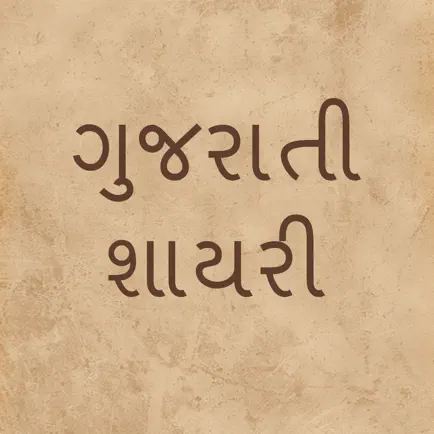 ગુજરાતી
શાયરી